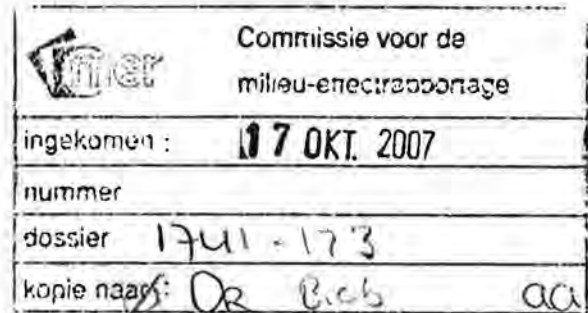 mer
Commissie voor de
milieu-effectrapportage
ingekomen : 17 OKT. 2007
nummer
dossier 1741-173
kopie naar: DR Bieb aa